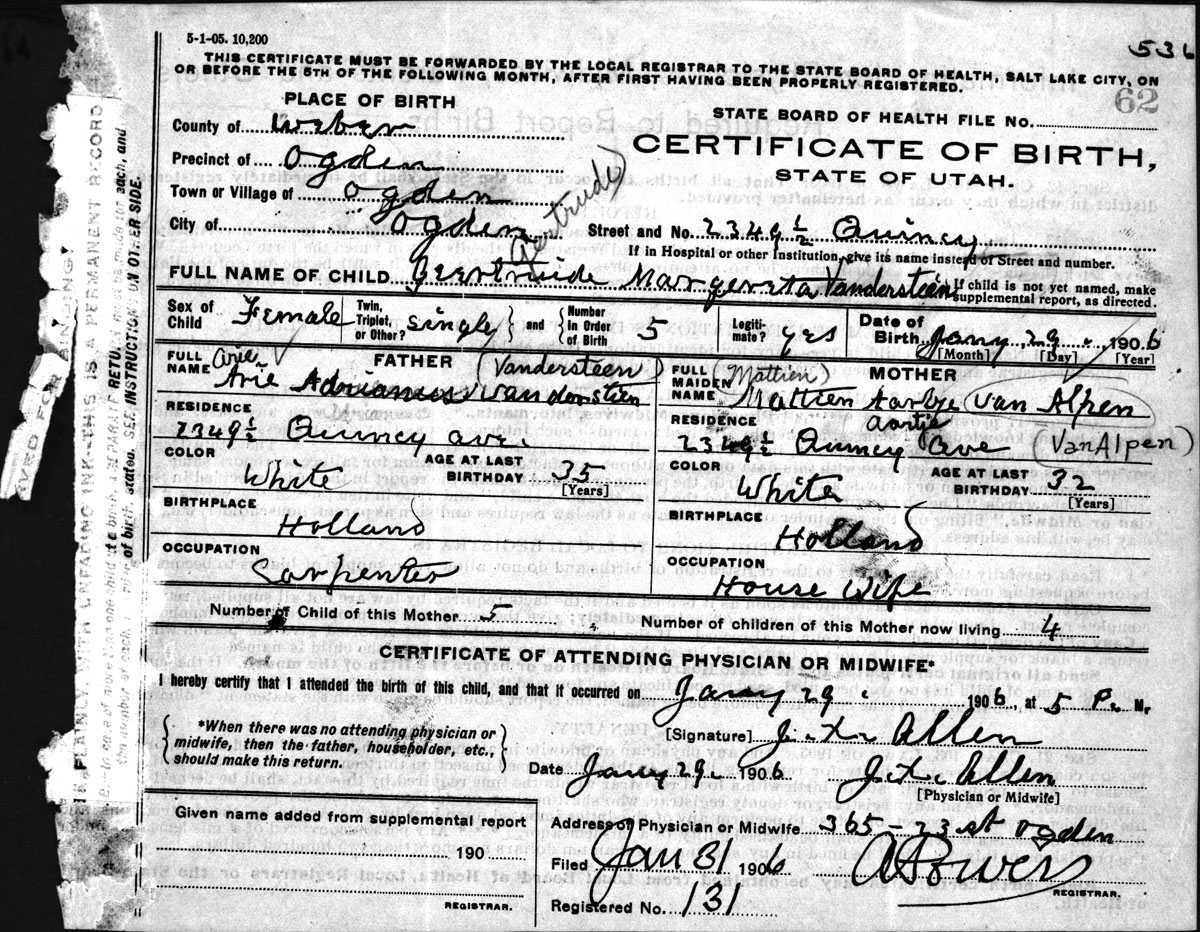 5-1-05. 10,200
536
THIS CERTIFICATE MUST BE FORWARDED BY THE LOCAL REGISTRAR TO THE STATE BOARD OF HEALTH, SALT LAKE CITY, ON
OR BEFORE THE 5TH OF THE FOLLOWING MONTH, AFTER FIRST HAVING BEEN PROPERLY REGISTERED.
62
PLACE OF BIRTH
STATE BOARD OF HEALTH FILE No.
County of Weber
CERTIFICATE OF BIRTH,
Precinct of Ogden
STATE OF UTAH.
Town or Village of Ogden
City of Ogden
Street and No. 2349½ Quincy
(Gertrude)
If in Hospital or other Institution, give its name instead of Street and number.
FULL NAME OF CHILD Gertrude Margereta Vandersteen
If child is not yet named, make supplemental report, as directed.
Sex of Child Female
Twin, Triplet, or Other? Single
and Number in Order of Birth 5
Legitimate? yes
Date of Birth Jany 29 1906
[Month] [Day] [Year]
FATHER
FULL NAME Arie Adrianus Vandersteen
Arie (Vandersteen)
RESIDENCE
2349½ Quincy ave.
COLOR White
AGE AT LAST BIRTHDAY 35
[Years]
BIRTHPLACE
Holland
OCCUPATION
Carpenter
MOTHER
FULL MAIDEN NAME Mattien Aartje Van Alpen
(Mattien)
Aartje
RESIDENCE
2349½ Quincy Ave (VanAlpen)
COLOR White
AGE AT LAST BIRTHDAY 32
[Years]
BIRTHPLACE
Holland
OCCUPATION
House Wife
Number of Child of this Mother 5
Number of children of this Mother now living 4
CERTIFICATE OF ATTENDING PHYSICIAN OR MIDWIFE*
I hereby certify that I attended the birth of this child, and that it occurred on Jany 29 1906, at 5 P. M.
*When there was no attending physician or midwife, then the father, householder, etc., should make this return.
[Signature] Allen
Date Jany 29 1906
Allen
[Physician or Midwife]
Given name added from supplemental report
190
REGISTRAR.
Address of Physician or Midwife 365 - 23 st Ogden
Filed Jan 31 1906
A Powers
REGISTRAR.
Registered No. 131
PLAINLY, WITH UNFADING INK-THIS IS A PERMANENT RECORD
of birth, stated. SEE INSTRUCTION ON OTHER SIDE.